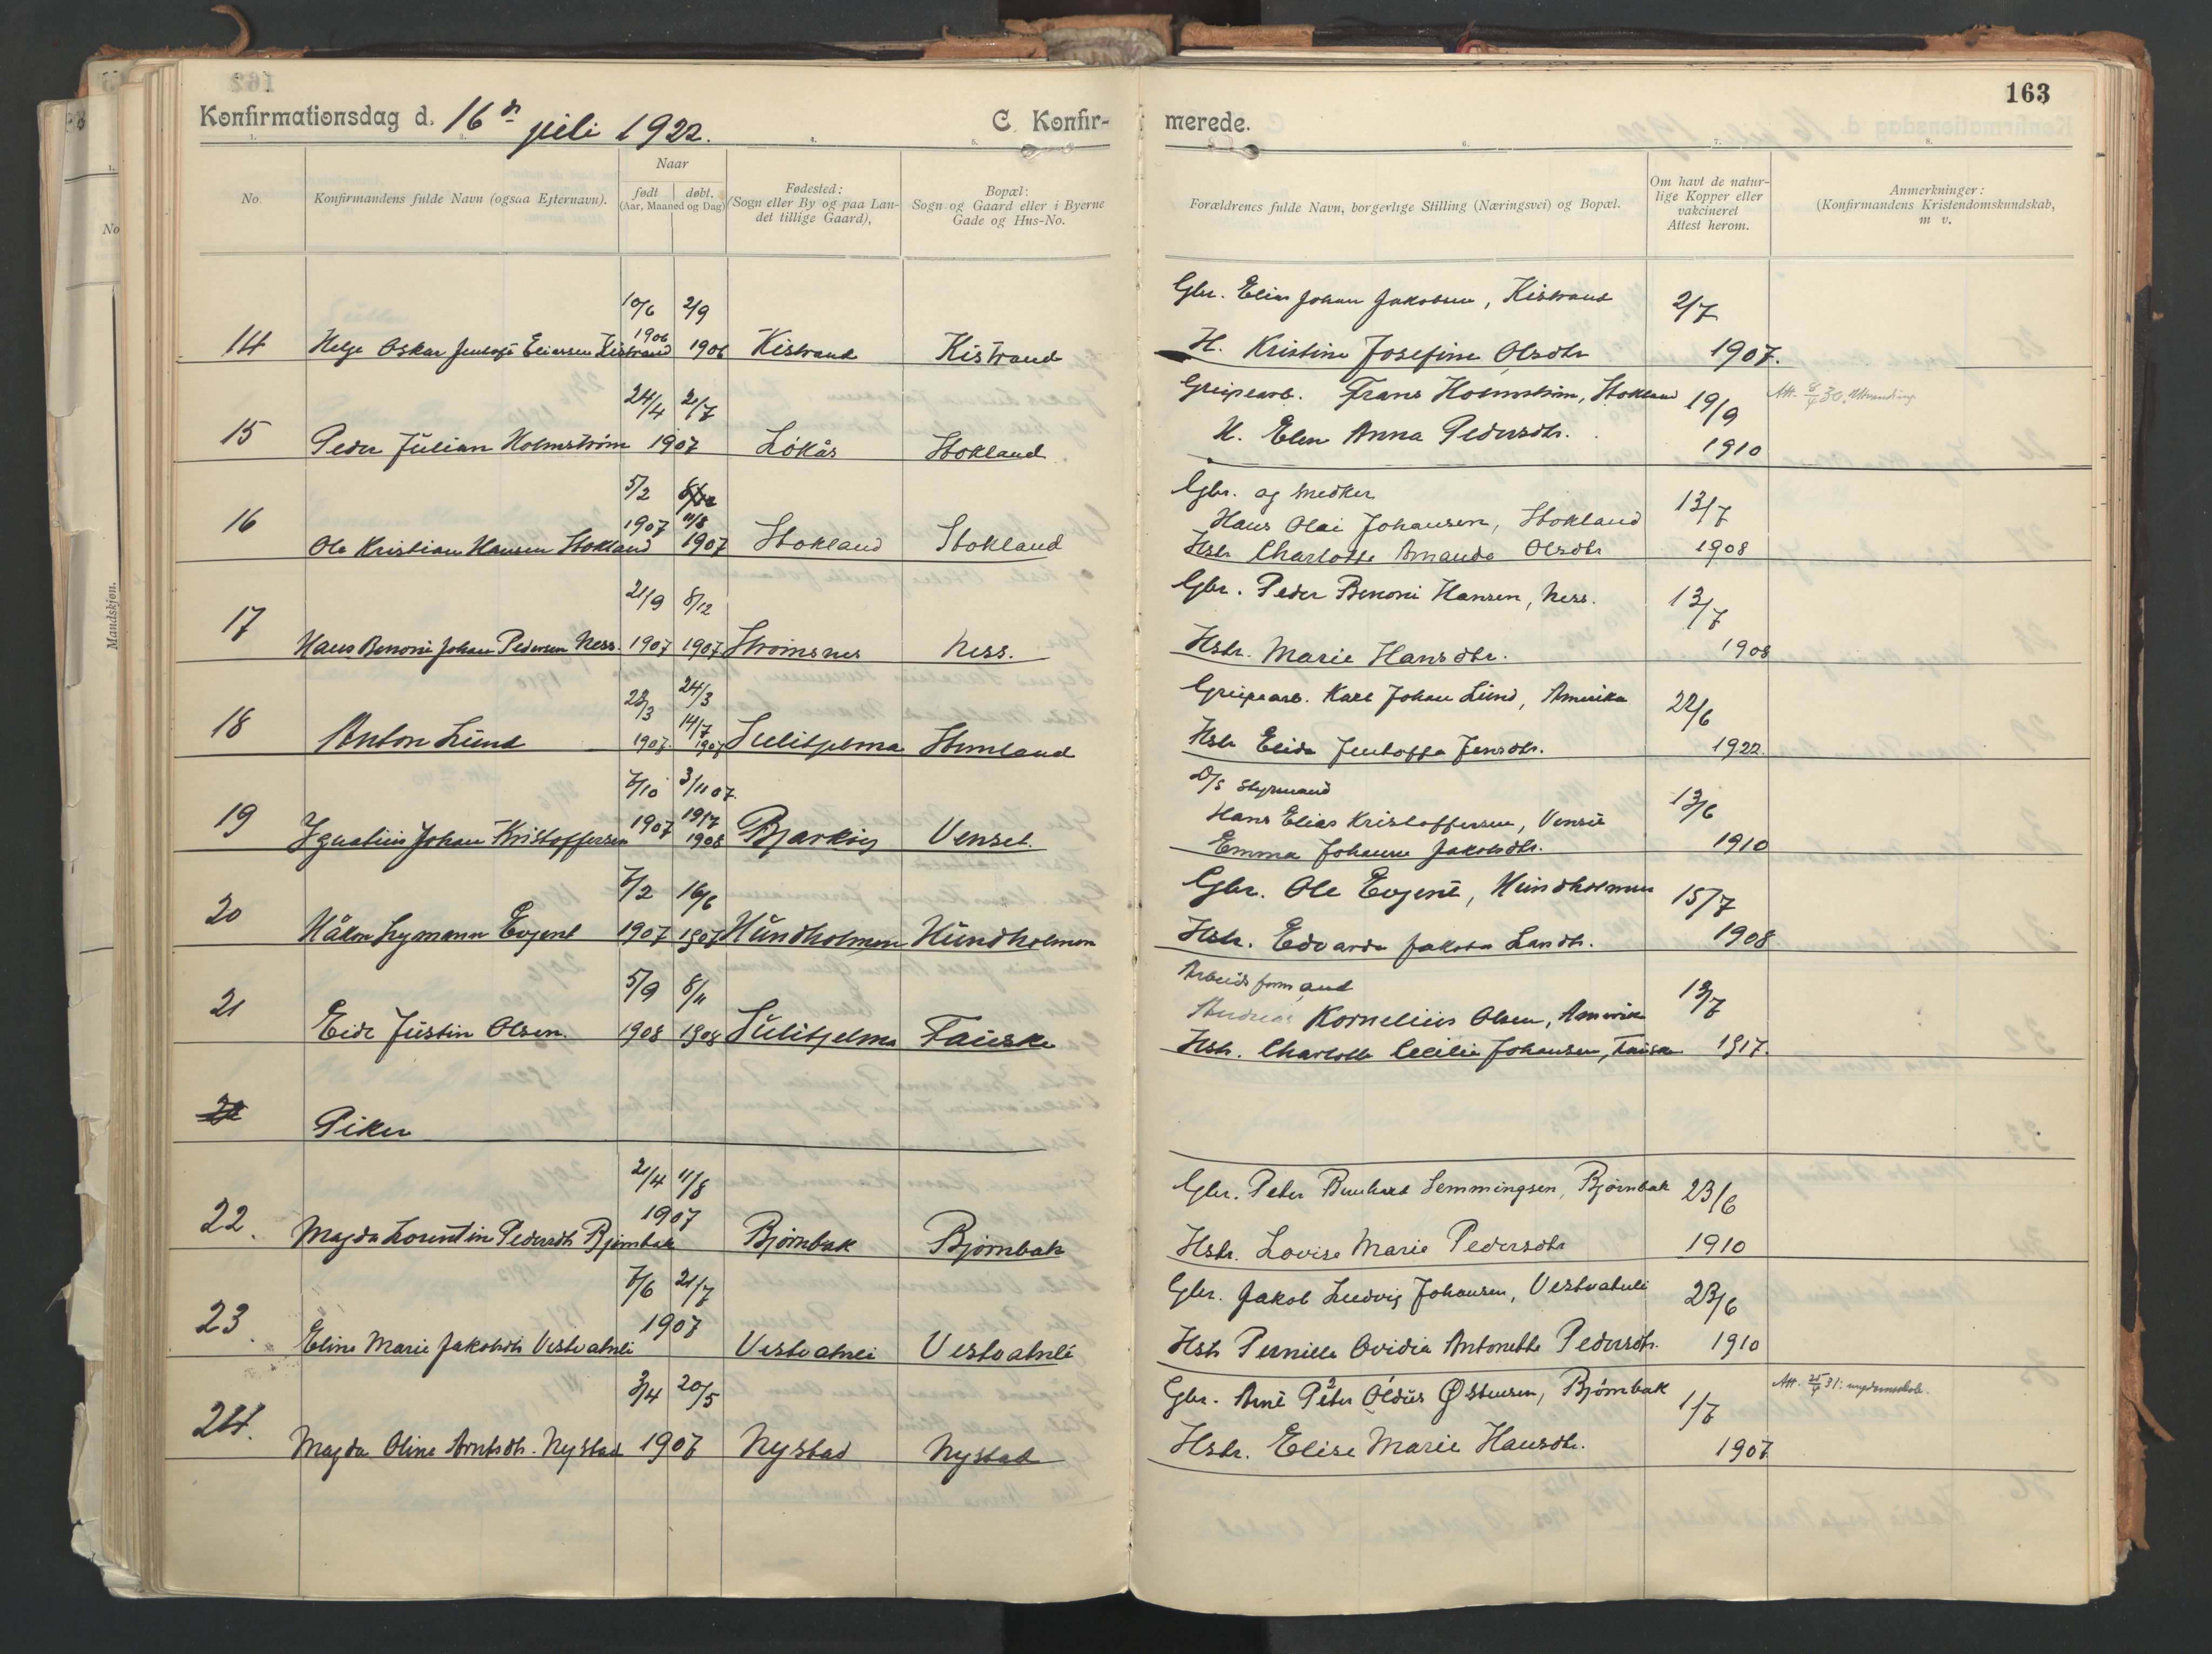 163
Konfirmationsdag d. 16 juli 1922. C. Konfirmerede.
No. Konfirmandens fulde Navn (ogsaa Efternavn). Naar født døbt. (Aar, Maaned og Dag) Fødested: (Sogn eller By og paa Landet tillige Gaard), Bopæl: Sogn og Gaard eller i Byerne Gade og Hus-No. Forældrenes fulde Navn, borgerlige Stilling (Næringsvei) og Bopæl. Om havt de naturlige Kopper eller vakcineret Attest herom. Anmerkninger: (Konfirmandens Kristendomskundskab, m. v.
10/6 2/9 Gbr. Elias Johan Jakobsen, Kistrand 2/7
14 Helge Oskar Jentoft Eliassen Kistrand 1906 1906 Kistrand Kistrand H. Kristine Josefine Olsdtr 1907.
24/4 21/7 Grubearb. Frans Holmstrøm, Stokland 19/9 Att. 8/4 30. Utvandring
15 Peder Julian Holmstrøm 1907 Løkås Stokland H. Elen Anna Pedersdtr. 1910
5/2 Gbr. og snedker 13/7
16 1907 11/8 Hans Olai Johansen, Stokland
Ole Kristian Hansen Stokland 1907 Stokland Stokland Hstr Charlotte Amanda Olsdtr 1908
21/9 8/12 Gbr. Peder Benoni Hansen, Ness. 13/7
17 Hans Benoni Johan Pedersen Ness. 1907 1907 Strømsnes Ness. Hstr. Marie Hansdtr. 1908
23/3 24/3 Karl Johan Lund, Amerika 22/6
18 Anton Lund 1907. 14/7 1907 Sulitjelma Hstr Elida Jentoffa Jensdtr. 1922.
7/10 3/11 07. D/S Styrmand 13/6
19 Ignatius Johan Kristoffersen 1907 19/7 1908 Bjarkøy Venset. Hans Elias Kristoffersen, Venset
Emma Johanne Jakobsdtr. 1910
7/2 16/6 Gbr. Ole Evjent, Hundholmen 15/7
20 Håkon Lymann Evjent 1907 1907 Hundholmen Hundholmen Hstr. Edvarda Jakoba Landtr. 1908
5/9 8/11 Arbeidsformand 13/7
21 Eide Justin Olsen. 1908 1908 Sulitjelma Fauske Andreas Kornelius Olsen, Amerika
Hstr. Charlotte Cecilie Johansen, Fauske 1917.
22 Piker
21/4 11/8 Gbr. Peter Bernhard Lemmingsen, Bjørnbak 23/6
22. Magda Lorentine Pedersdtr Bjørnbak 1907 Bjørnbak Bjørnbak Hstr. Lovise Marie Pedersdtr 1910
7/6 21/7 Gbr. Jakob Ludvig Johansen, Vestvatnli 23/6
23. Eline Marie Jakobsdtr Vestvatnli 1907 Vestvatnli Vestvatnli Hstr Pernille Ovidia Antonette Pedersdtr. 1910
3/4 20/5 Gbr. Arnt Peter Oldus Østensen, Bjørnbak 1/7 Att. 25/4 31:
24. Magda Oline Arntsdtr. Nystad 1907 Nystad Nystad Hstr. Elise Marie Hansdtr. 1907
Mandskjøn.